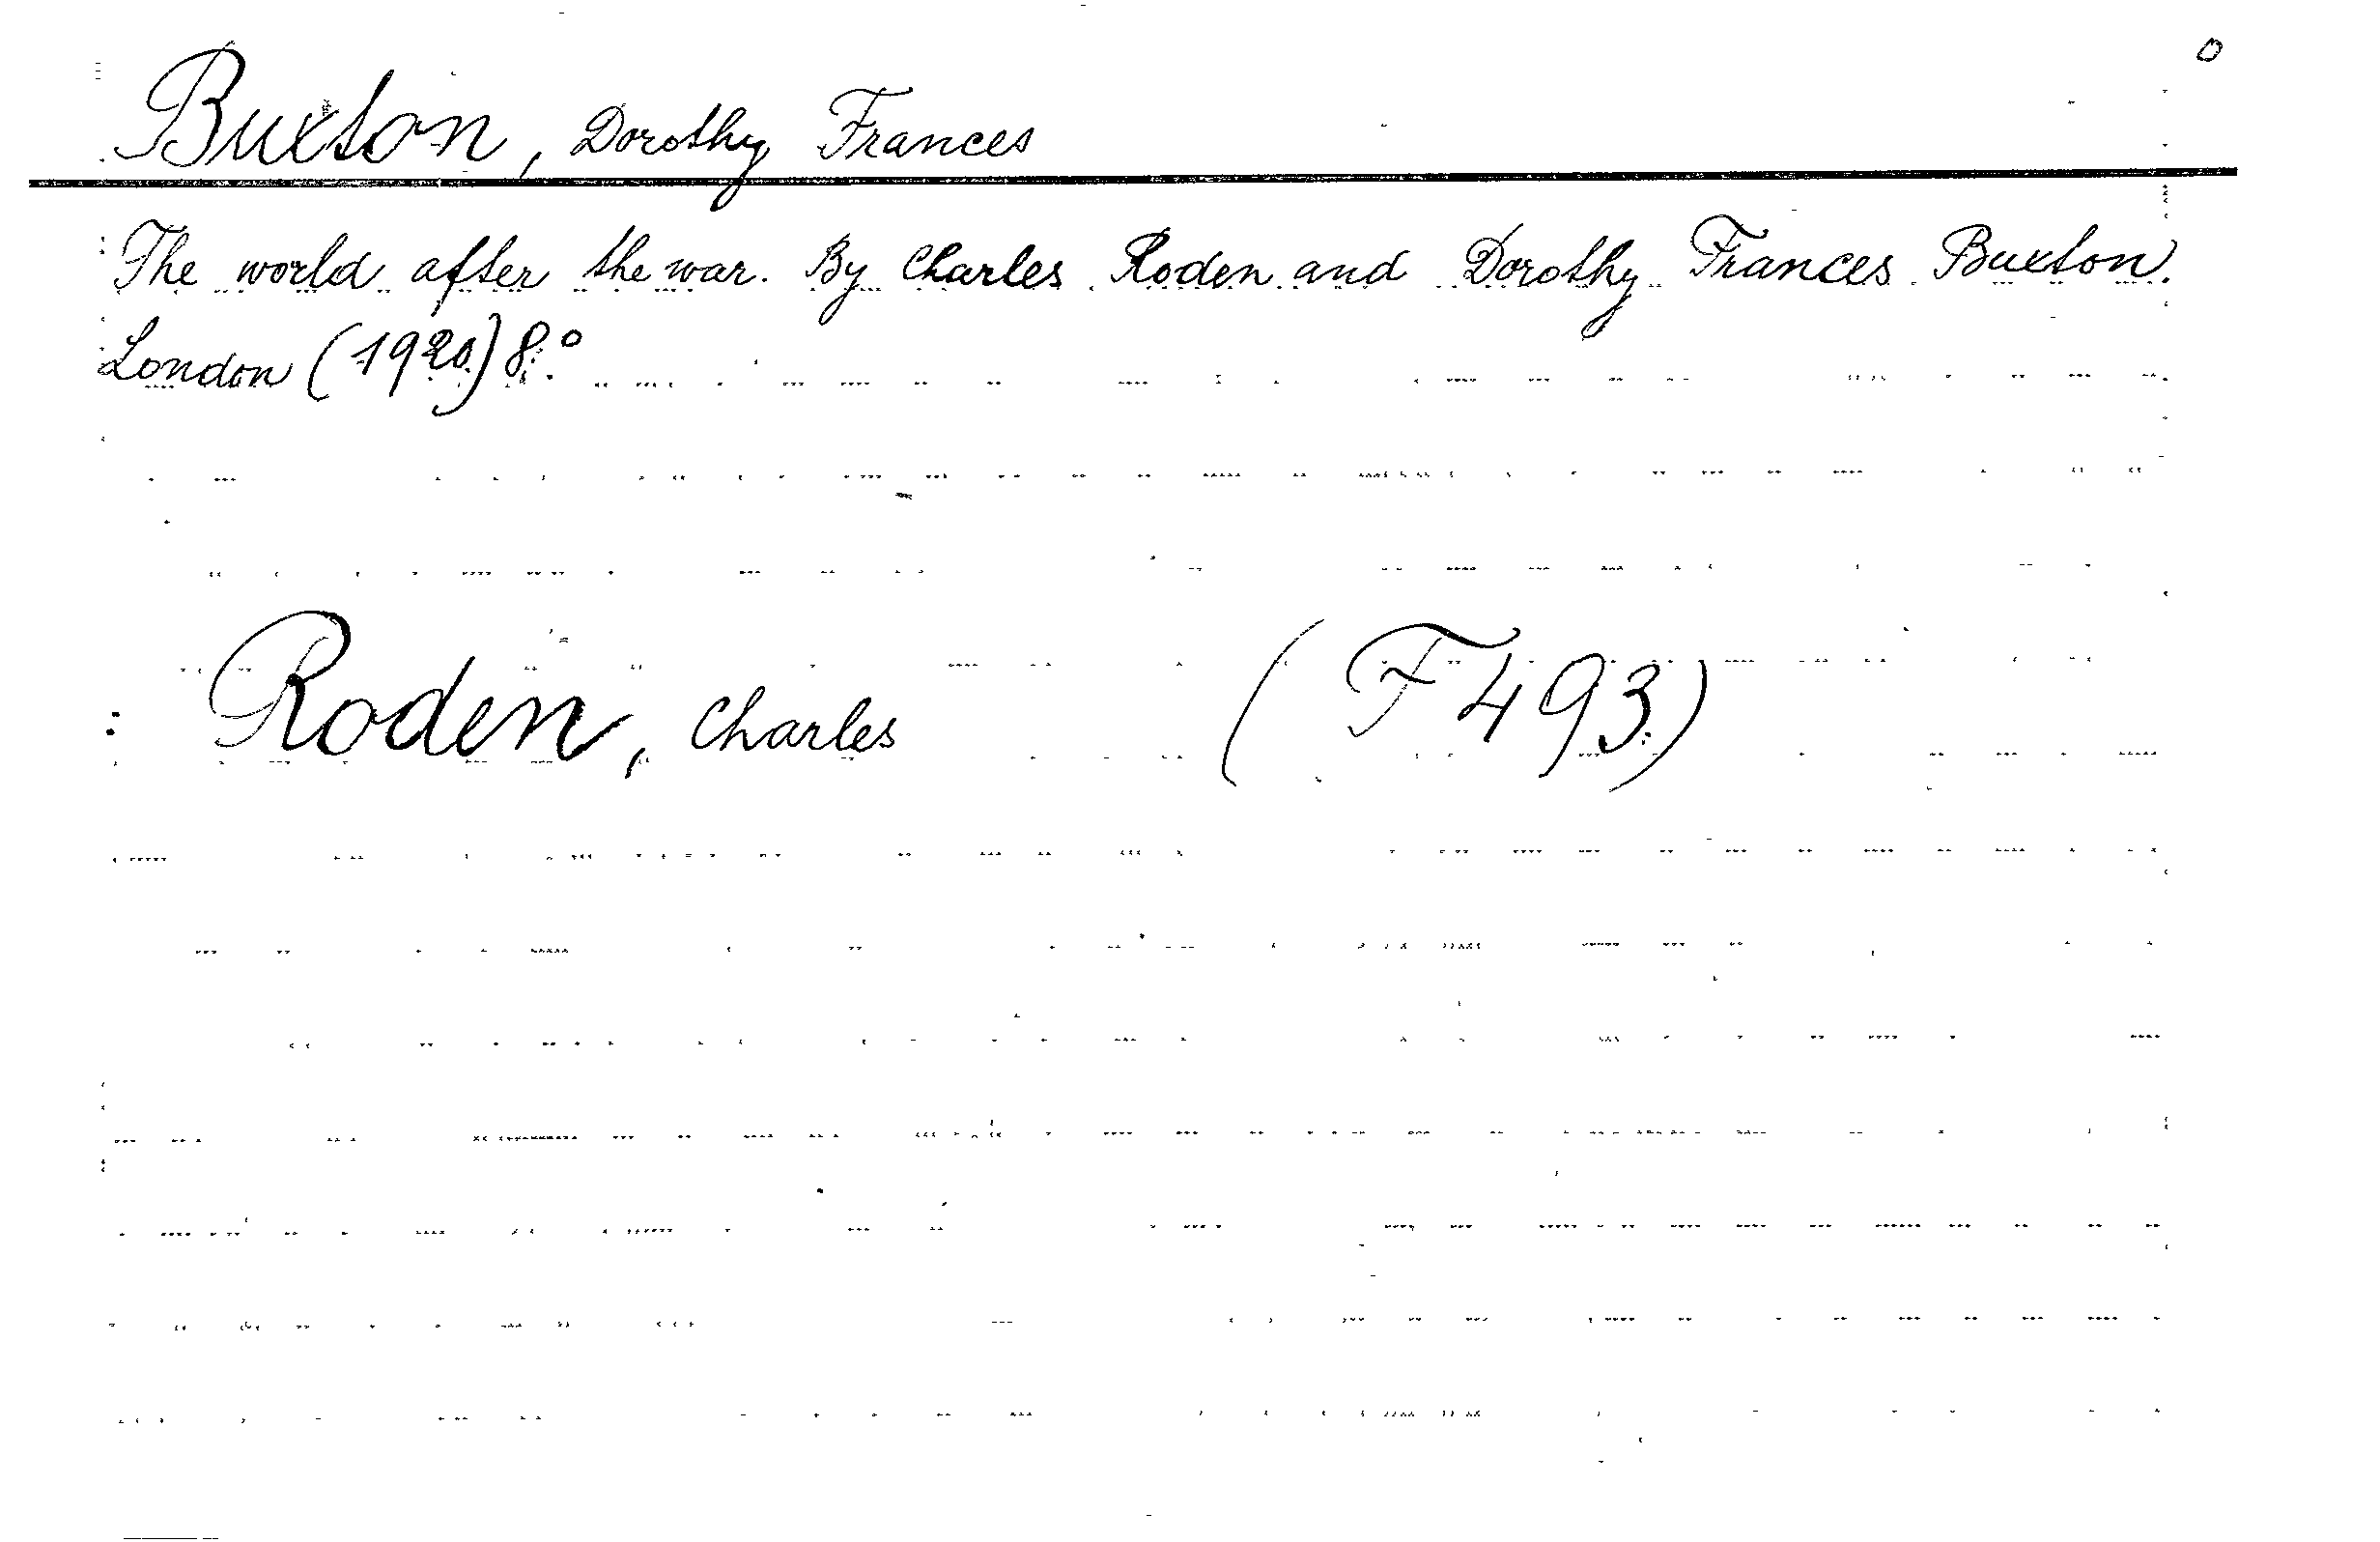 Buxton, Dorothy Frances
The world after the war. By Charles Roden and Dorothy Frances Buxton.
London (1920) 8.°
Roden, Charles (F 493)